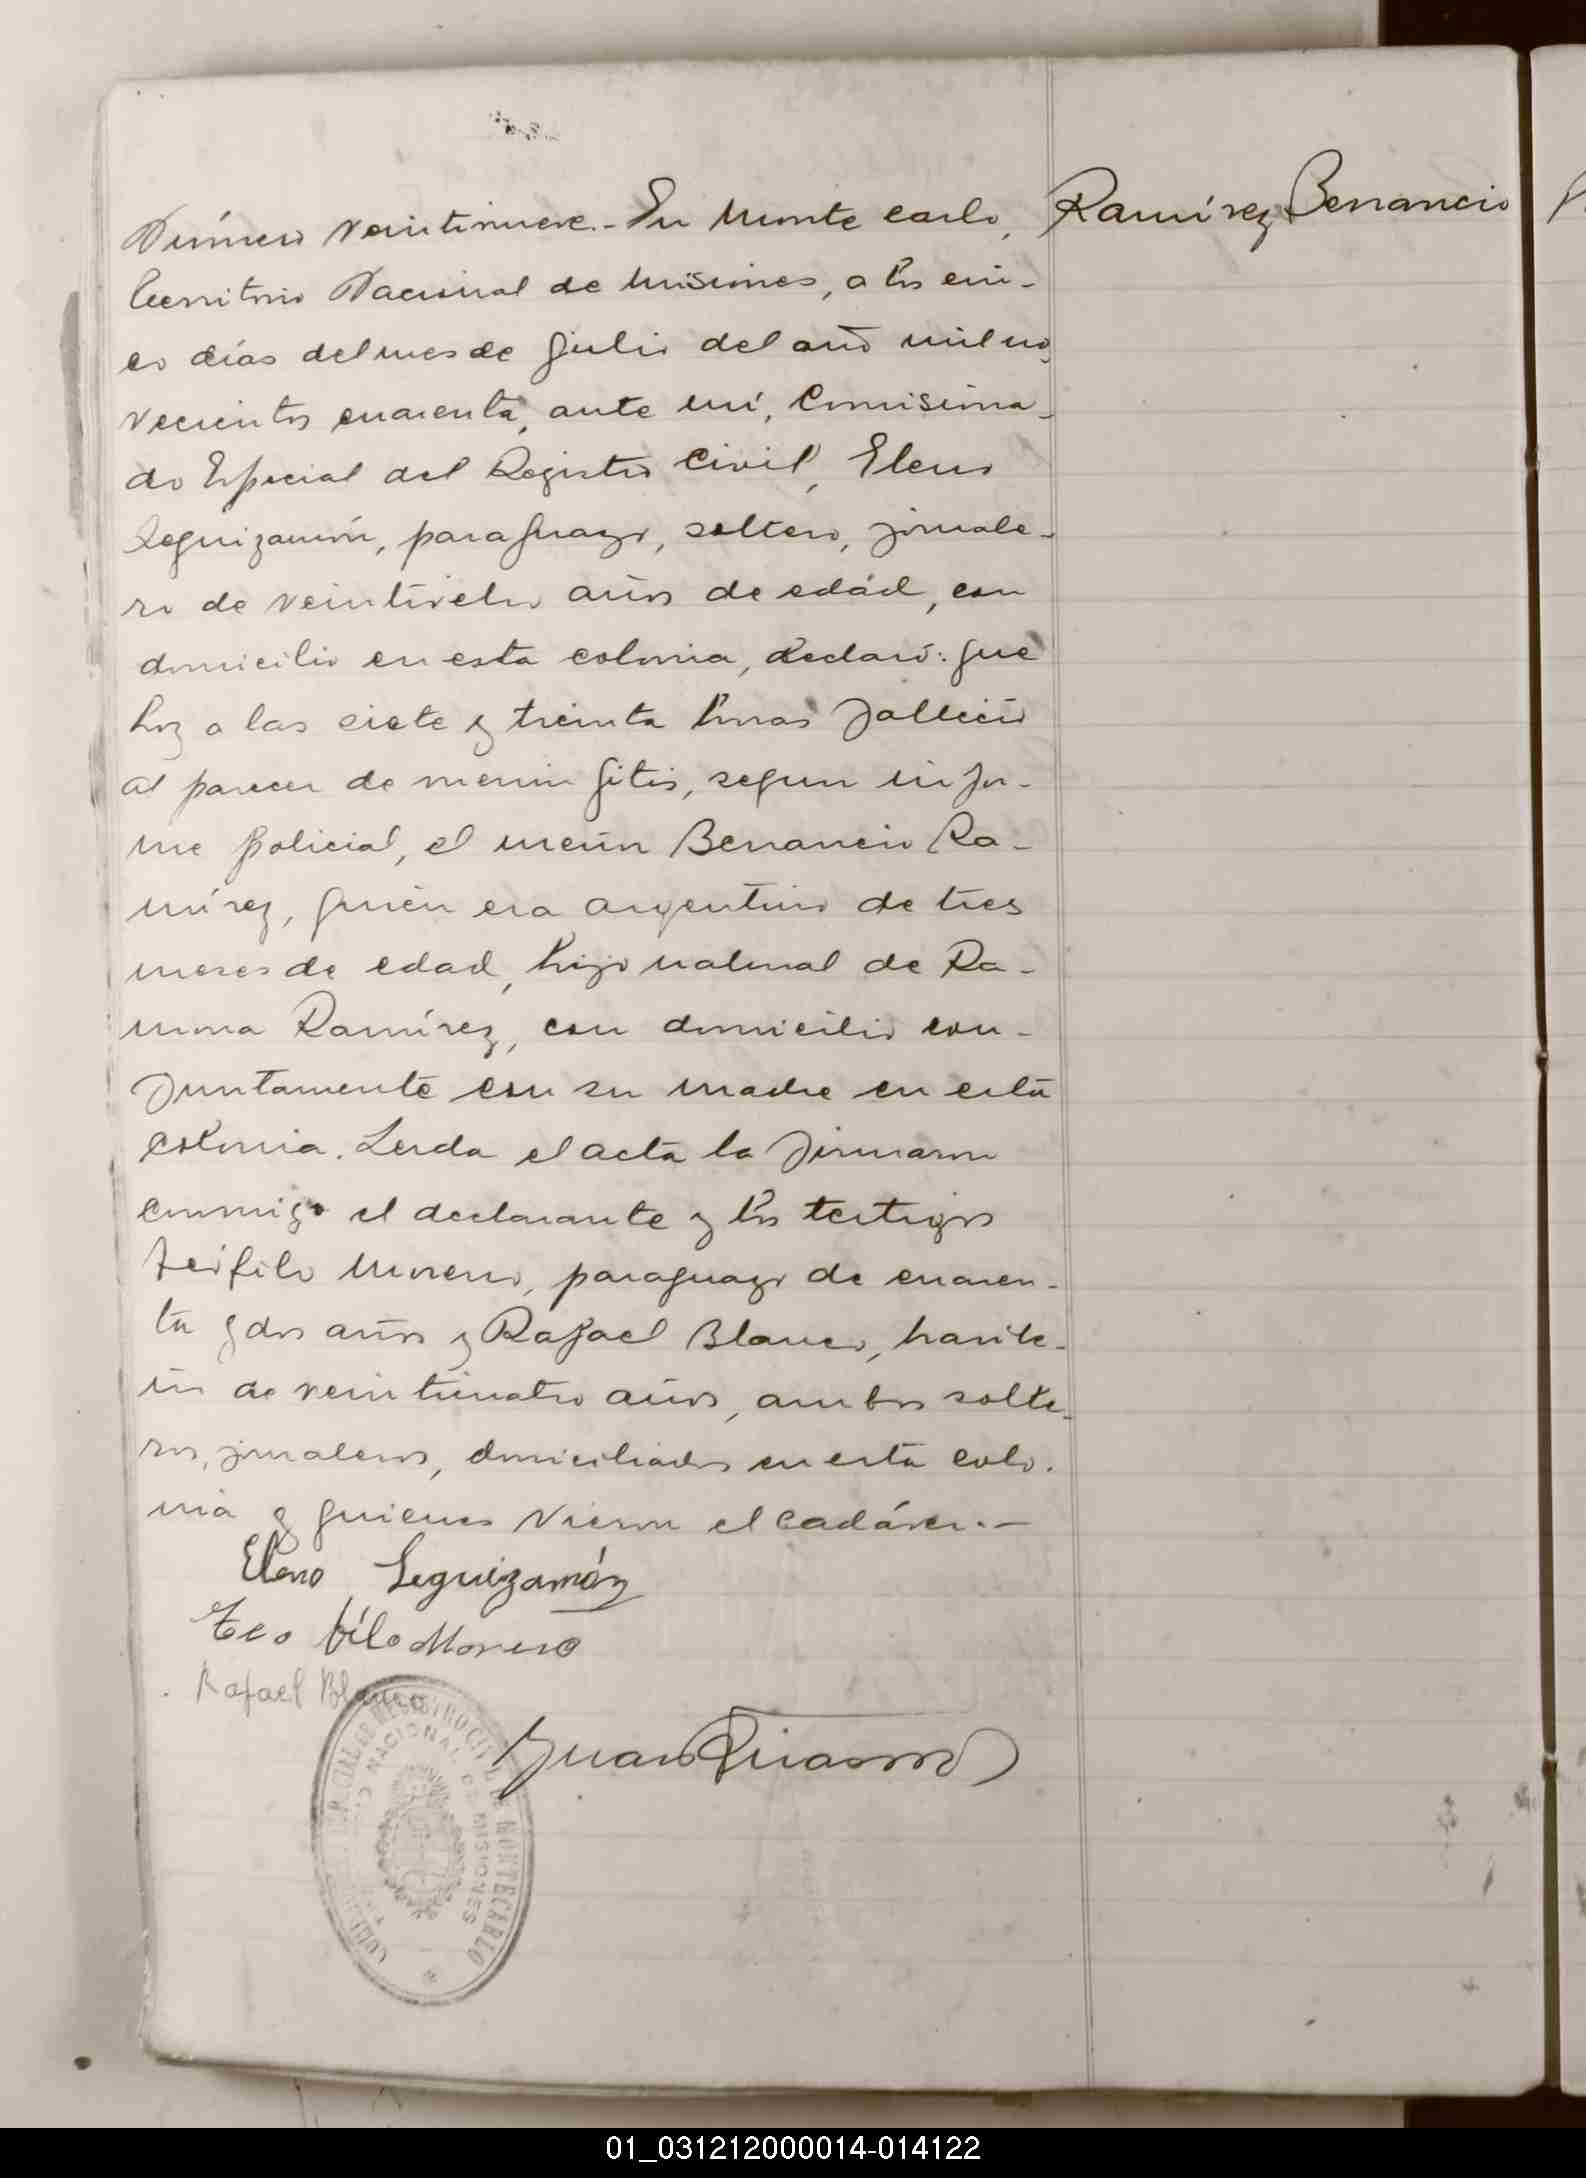 Ramírez Benancio
Número veintinueve.- En Monte Carlo,
Territorio Nacional de Misiones, a los cin-
co días del mes de Julio del año mil no-
vecientos cuarenta, ante mí, Comisiona-
do Especial del Registro Civil, Eleno
Leguizamón, paraguayo, soltero, jornale-
ro de veintiocho años de edád, con
domicilio en esta colonia, declaró: que
hoy a las siete y treinta horas falleció
al parecer de meningitis, segun infor-
me policial, el menor Benancio Ra-
mírez, quién era argentino de tres
meses de edad, hijo natural de Ra-
mona Ramírez, con domicilio con-
juntamente con su madre en esta
colonia. Leida el acta la firmaron
conmigo el declarante y los testigos
Teófilo Moreno, paraguayo de cuaren-
ta y dos años y Rafael Blanco, brasile-
ño de veinticuatro años, ambos solte-
ros, jornaleros, domiciliados en esta colo-
nia y quienes vieron el cadáver.-
Eleno Leguizamón
Teofilo Moreno
Rafael Blanco
Juan
REGISTRO CIVIL DE MONTECARLO
NACIONAL DE MISIONES
01_031212000014-014122